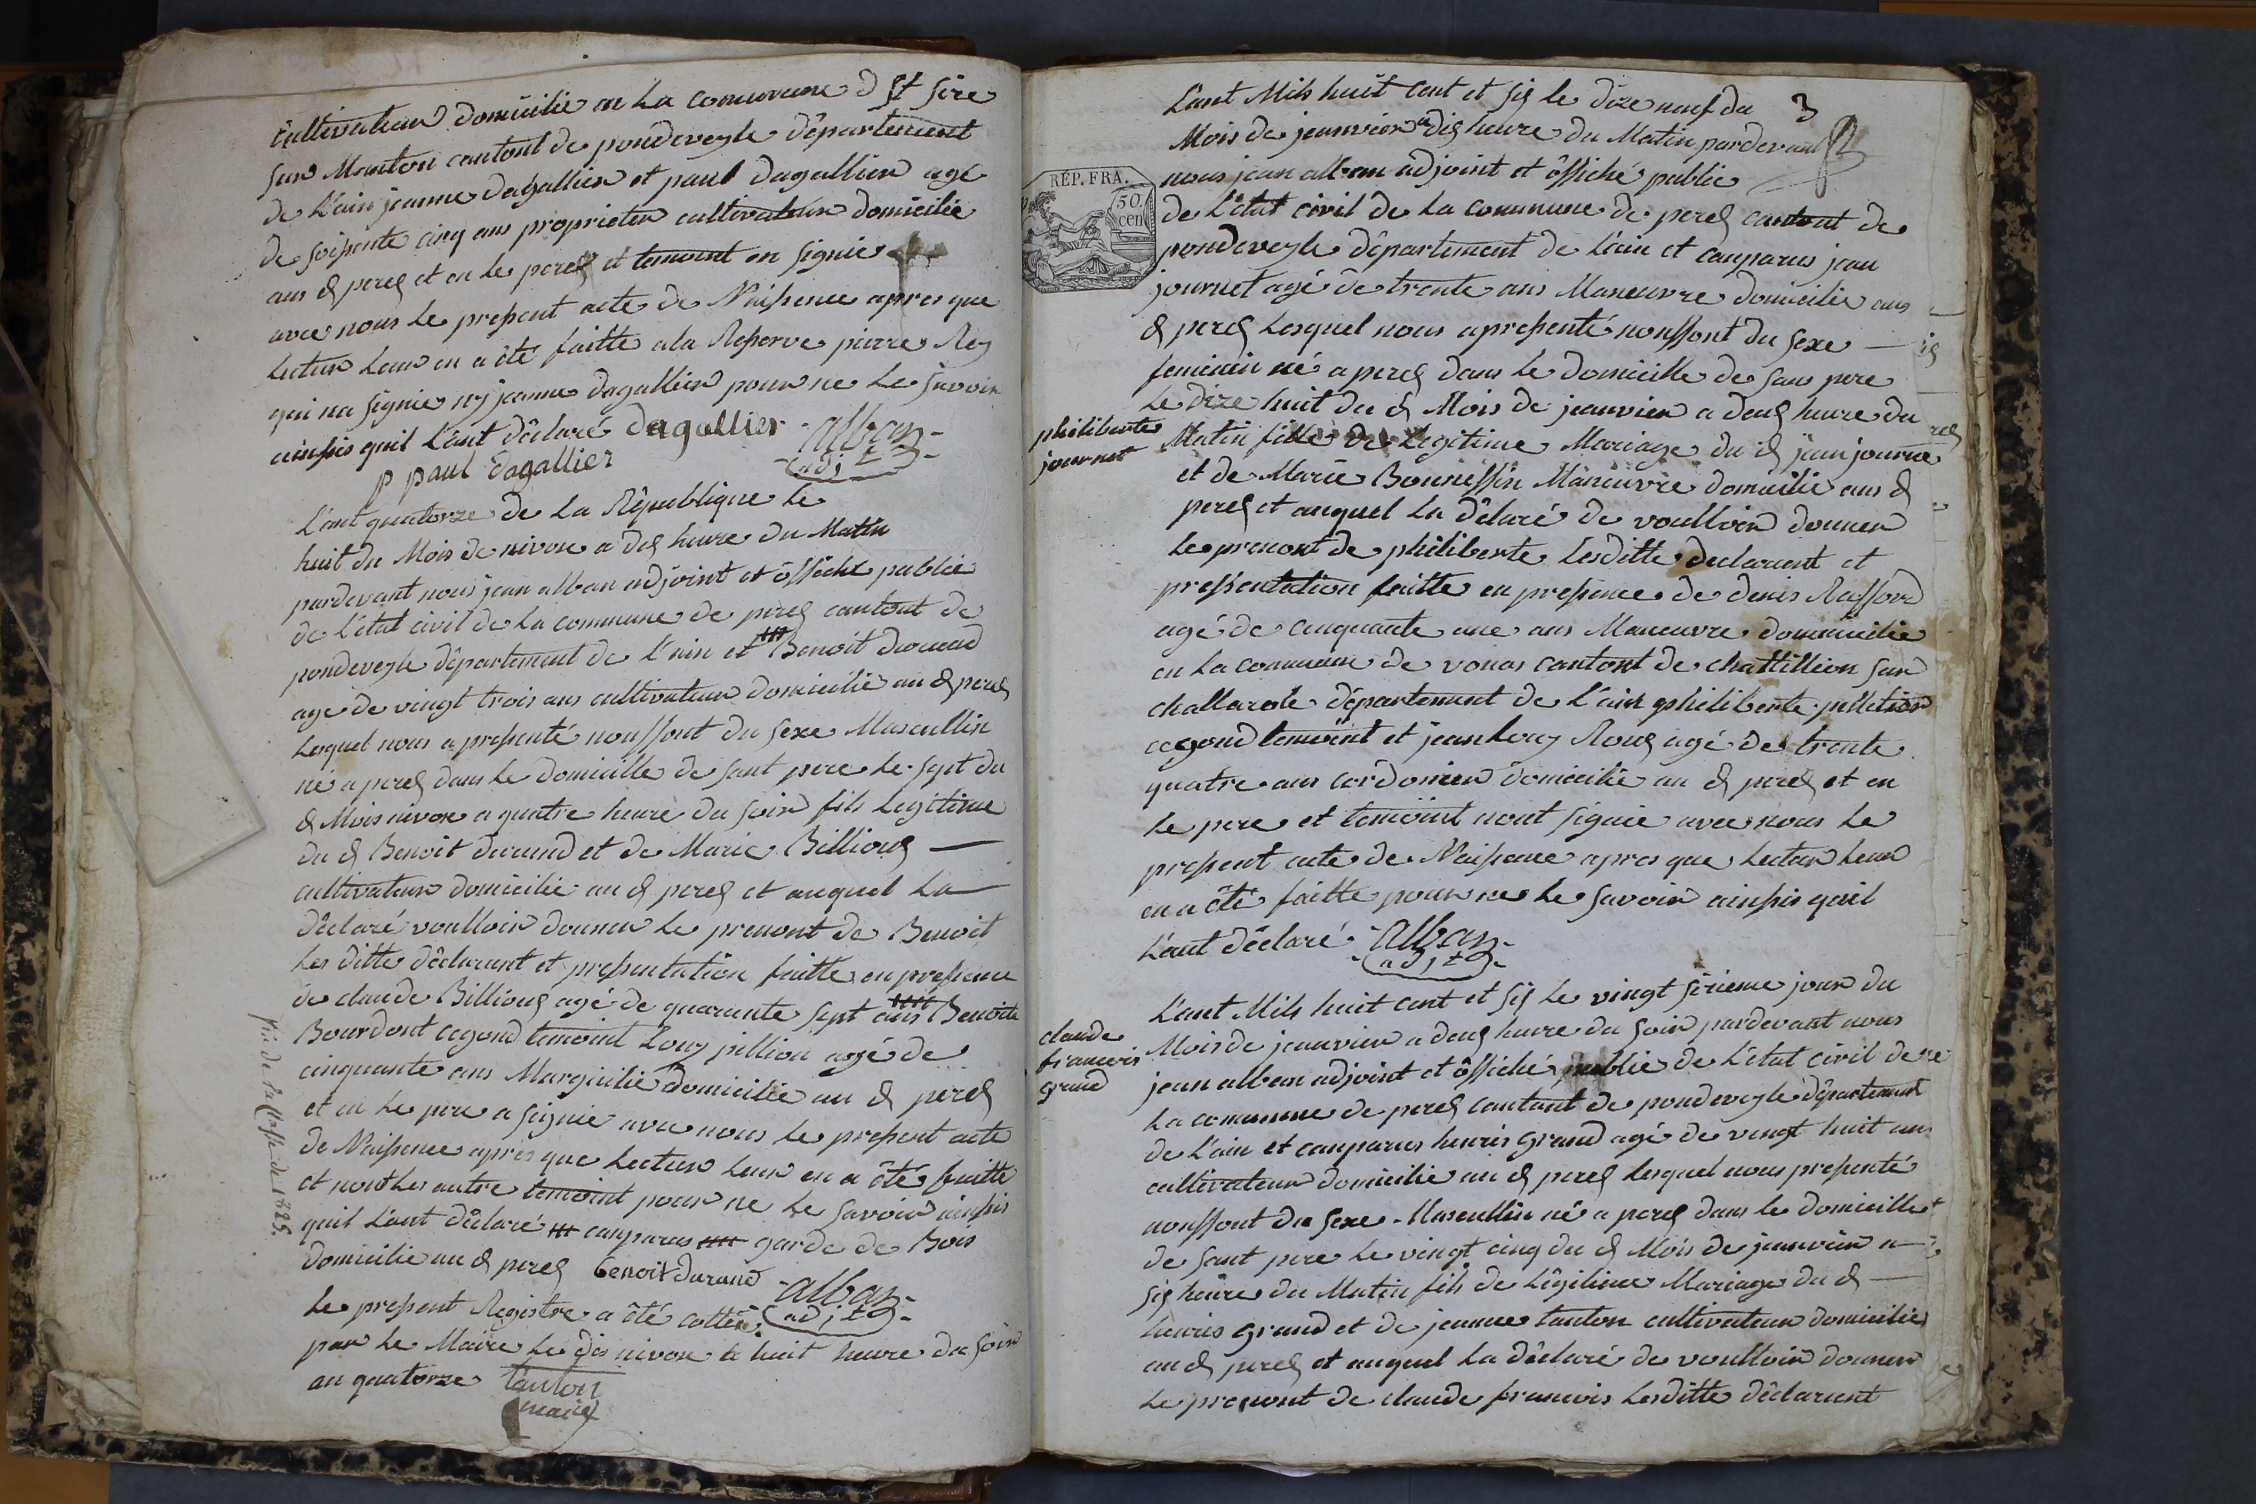 cultivateur domicilie en La commune d St Sire
sur Manton cantont de pondeveyle département
de L'ain jeanne dagallier et paul dagallier agé
de soixente cinq ans proprieter cultivateur domicilie
aus d perex et en le perex et temoint on signie
avec nous Le present acte de Naissence apres que
Lecture Leur en a été faitte ala Reserve pierre Rey
qui na signie ny jeanne dagallier pour ne Le savoir
ainssis quil L'ant déclaré dagallier alban
p paul dagallier adjt
L'ant quatorze de La République Le
huit du Mois de nivose a dix heure du Matin
pardevant nous jean alban adjoint et ôffiché publie
de L'état civil de La commune de perex cantont de
pondeveyle département de L'ain et Benoit durand
agé de vingt trois ans cultivateur domicilié au d perex
Lesquel nous a pressenté noussont du sexe Mascullin
né a perex dans Le domicille de sant pere Le sept du
d Mois nivose a quatre heure du soir fils Legitime
du d Benoit durand et de Marie Billioux
cultivateur domicilié au d perex et auquel La
déclaré voulloir donner Le prenont de Benoit
Les ditte déclarant et pressentation faitte en pressence
de claude Billioux agé de quarante sept ans Benoite
Bourdont cegond temoint Louy pillion agé de
cinquante ans Margiulié domicilie au d perex
et en Le pere a signie avec nous Le pressent acte
de Naissence apres que Lecture Leur en a été faitte
et nont Les autre temoint pour ne Le savoir ainssis
quil L'ant déclaré canparus garde de Bois
domicilie au d perex benoit durand alban
adjt
Le pressent Registre a été cotté
par Le Maire Le dis nivose a huit heure du soir
an quatorze tanton
maire
fin de la Classe de 1825.
3
L'ant Mils huit cent et six le dize neuf du
Mois de jeanvier a dix heure du Matin pardevant
nous jean alban adjoint et ôffiché publie
REP. FRA.
50 cen
de L'état civil de La commune de perex cantont de
pondeveyle département de L'ain et canparus jean
journet agé de trente ans Maneuvre domicilie aus
d perex Lesquel nous apressenté noussont du sexe
feminin né a perex dans Le domicille de sans pere
Le dize huit du d Mois de jeanvier a deux heure du
philiberte
journet
Matin fille de Legitime Mariage du d jean journe
et de Marie Bonnessin Maneuvre domicilie aus d
perex et auquel La déclaré de voulloir donner
Le prenont de philiberte Lesditte declarant et
pressentation faitte en pressence de denis Rassord
agé de cinquante une ans Maneuvre domicilie
en La commune de vonas cantont de chattillion sur
challarode département de L'ain philiberte pelletier
cegond temoint et jean Louy Roux agé de trente
quatre ans cordonier domicilié au d perex et en
Le pere et temoint nont signie avec nous Le
pressent acte de Naissence apres que Lectur Leur
en a été faitte pour ne Le savoir ainssis quil
L'ant déclaré alban
adjt
L'ant Mils huit cent et six Le vingt sizieme jour du
claude
francois
grand
Mois de jeanvier a deux heure du soir pardevant nous
jean alban adjoint et ôffiché publie de L'état civil de
La commune de perex cantont de pondeveyle département
de L'ain et canparus henris grand agé de vingt huit ans
cultivateur domicilie au d perex Lesquel nous pressenté
noussont du sexe Mascullin né a perex dans le domicille
de sant pere Le vingt cinq du d Mois de jeanvier a
six heure du Matin fils de Légitime Mariage du d
henris grand et de jeanne tanton cultivateur domicilie
au d perex et auquel La déclaré de voulloir donner
Le prenont de claude francois Lesditte déclarant